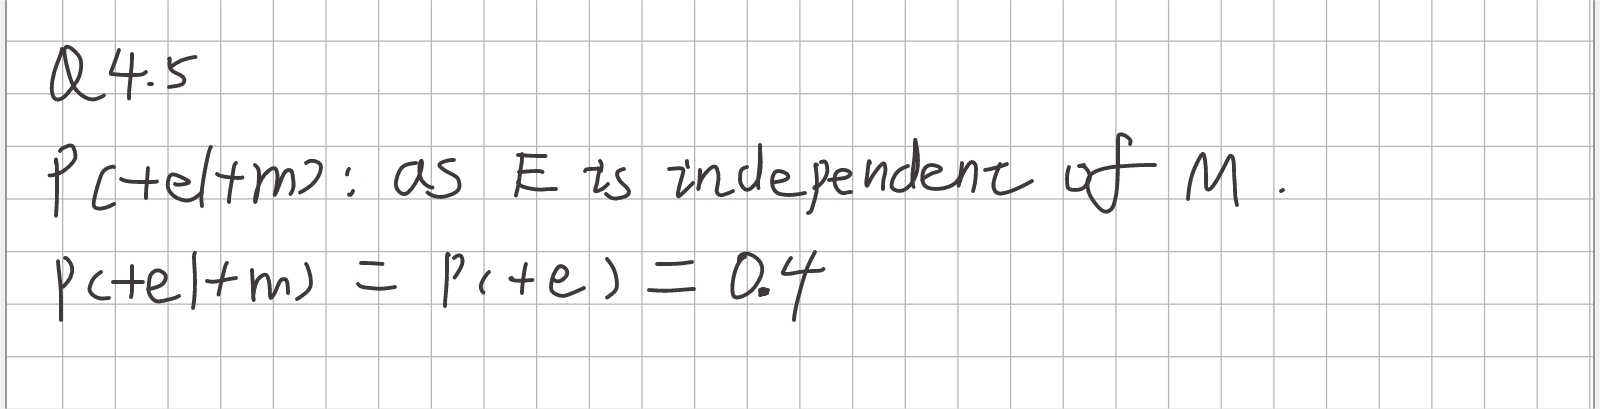 Q4.5
P(+e|+m): as E is independent of M.
P(+e|+m) = P(+e) = 0.4